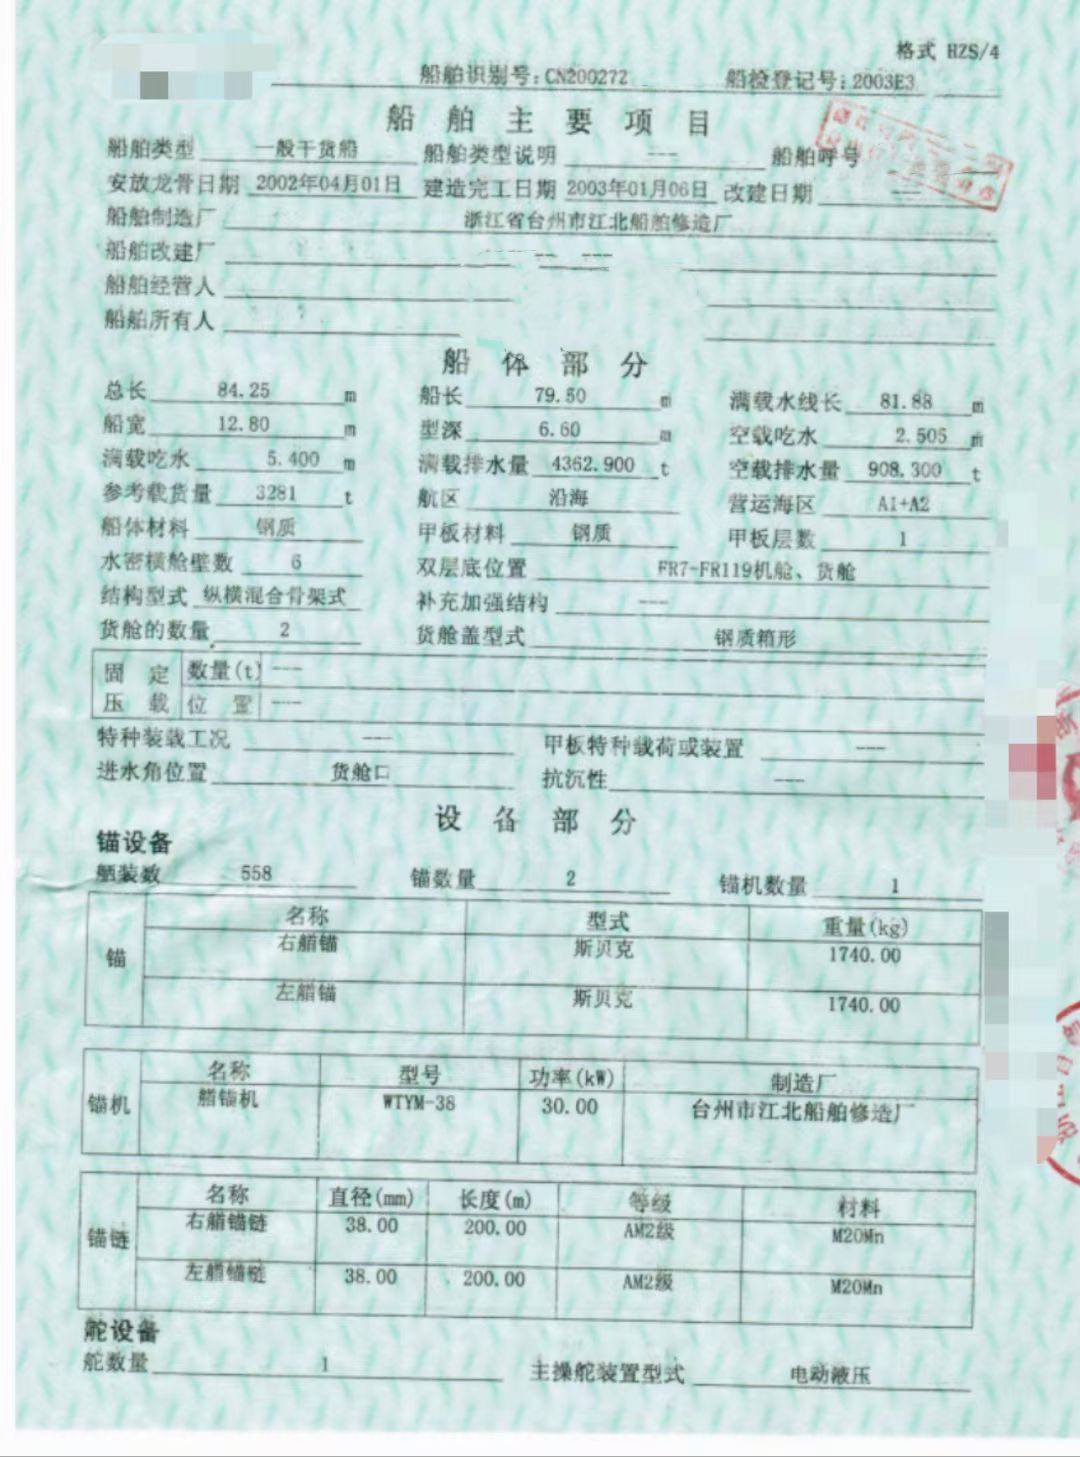 格式 HZS/4
船舶识别号:CN200272 船检登记号:2003E3
船舶主要项目
船舶类型 一般干货船 船舶类型说明 --- 船舶呼号
安放龙骨日期 2002年04月01日 建造完工日期 2003年01月06日 改建日期 ---
船舶制造厂 浙江省台州市江北船舶修造厂
船舶改建厂 ---
船舶经营人
船舶所有人
船体部分
总长 84.25 m 船长 79.50 m 满载水线长 81.88 m
船宽 12.80 m 型深 6.60 m 空载吃水 2.505 m
满载吃水 5.400 m 满载排水量 4362.900 t 空载排水量 908.300 t
参考载货量 3281 t 航区 沿海 营运海区 A1+A2
船体材料 钢质 甲板材料 钢质 甲板层数 1
水密横舱壁数 6 双层底位置 FR7-FR119机舱、货舱
结构型式 纵横混合骨架式 补充加强结构 ---
货舱的数量 2 货舱盖型式 钢质箱形
固定 数量(t) ---
压载 位置 ---
特种装载工况 --- 甲板特种载荷或装置 ---
进水角位置 货舱口 抗沉性 ---
设备部分
锚设备
舾装数 558 锚数量 2 锚机数量 1
名称 型式 重量(kg)
锚 右艏锚 斯贝克 1740.00
左艏锚 斯贝克 1740.00
名称 型号 功率(kW) 制造厂
锚机 艏锚机 WTYM-38 30.00 台州市江北船舶修造厂
名称 直径(mm) 长度(m) 等级 材料
锚链 右艏锚链 38.00 200.00 AM2级 M20Mn
左艏锚链 38.00 200.00 AM2级 M20Mn
舵设备
舵数量 1 主操舵装置型式 电动液压